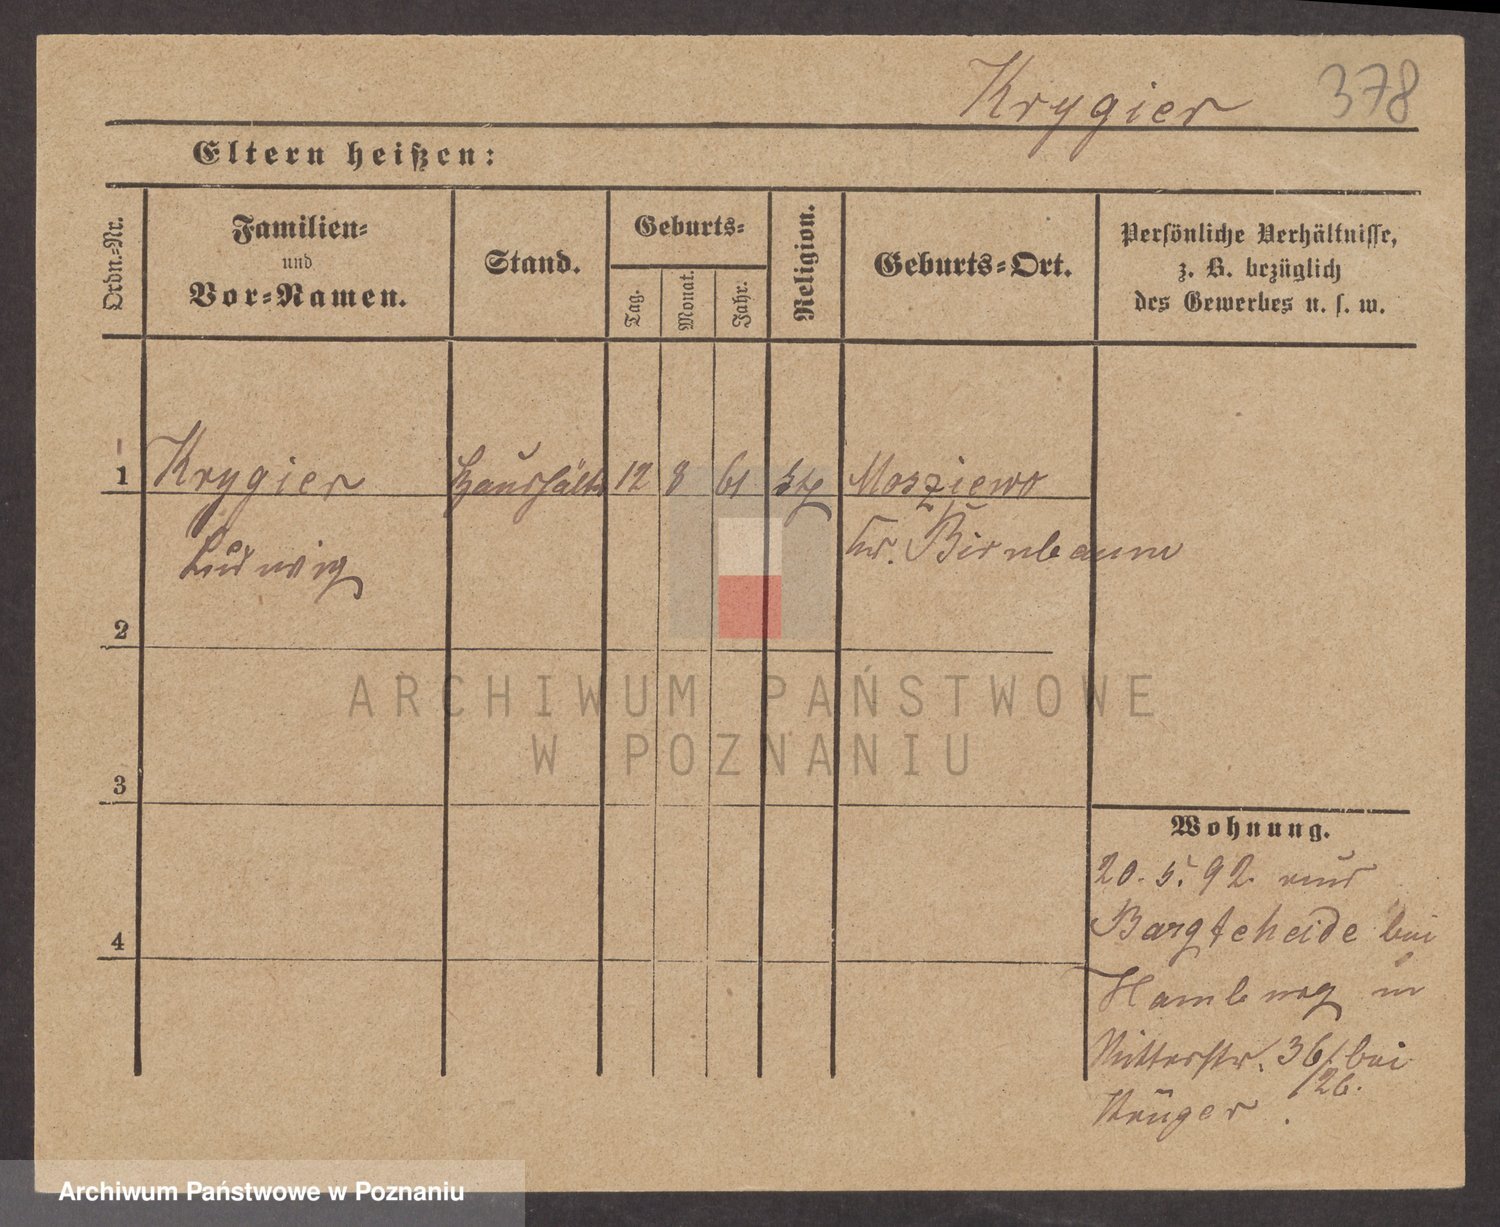 Krygier 378
Eltern heißen:
Ordn.-Nr.
Familien-
und
Vor-Namen.
Stand.
Geburts-
Tag.
Monat.
Jahr.
Religion.
Geburts-Ort.
Persönliche Verhältnisse,
z. B. bezüglich
des Gewerbes u. s. w.
1 Krygier Haushält. 12 8 61 Mosziewo
Ludwig Kr. Birnbaum
2
ARCHIWUM PAŃSTWOWE
W POZNANIU
3
Wohnung.
20. 5. 92. aus
Bargteheide bei
4
Hamburg in
Ritterstr. 36/ bei
26.
Krüger.
Archiwum Państwowe w Poznaniu